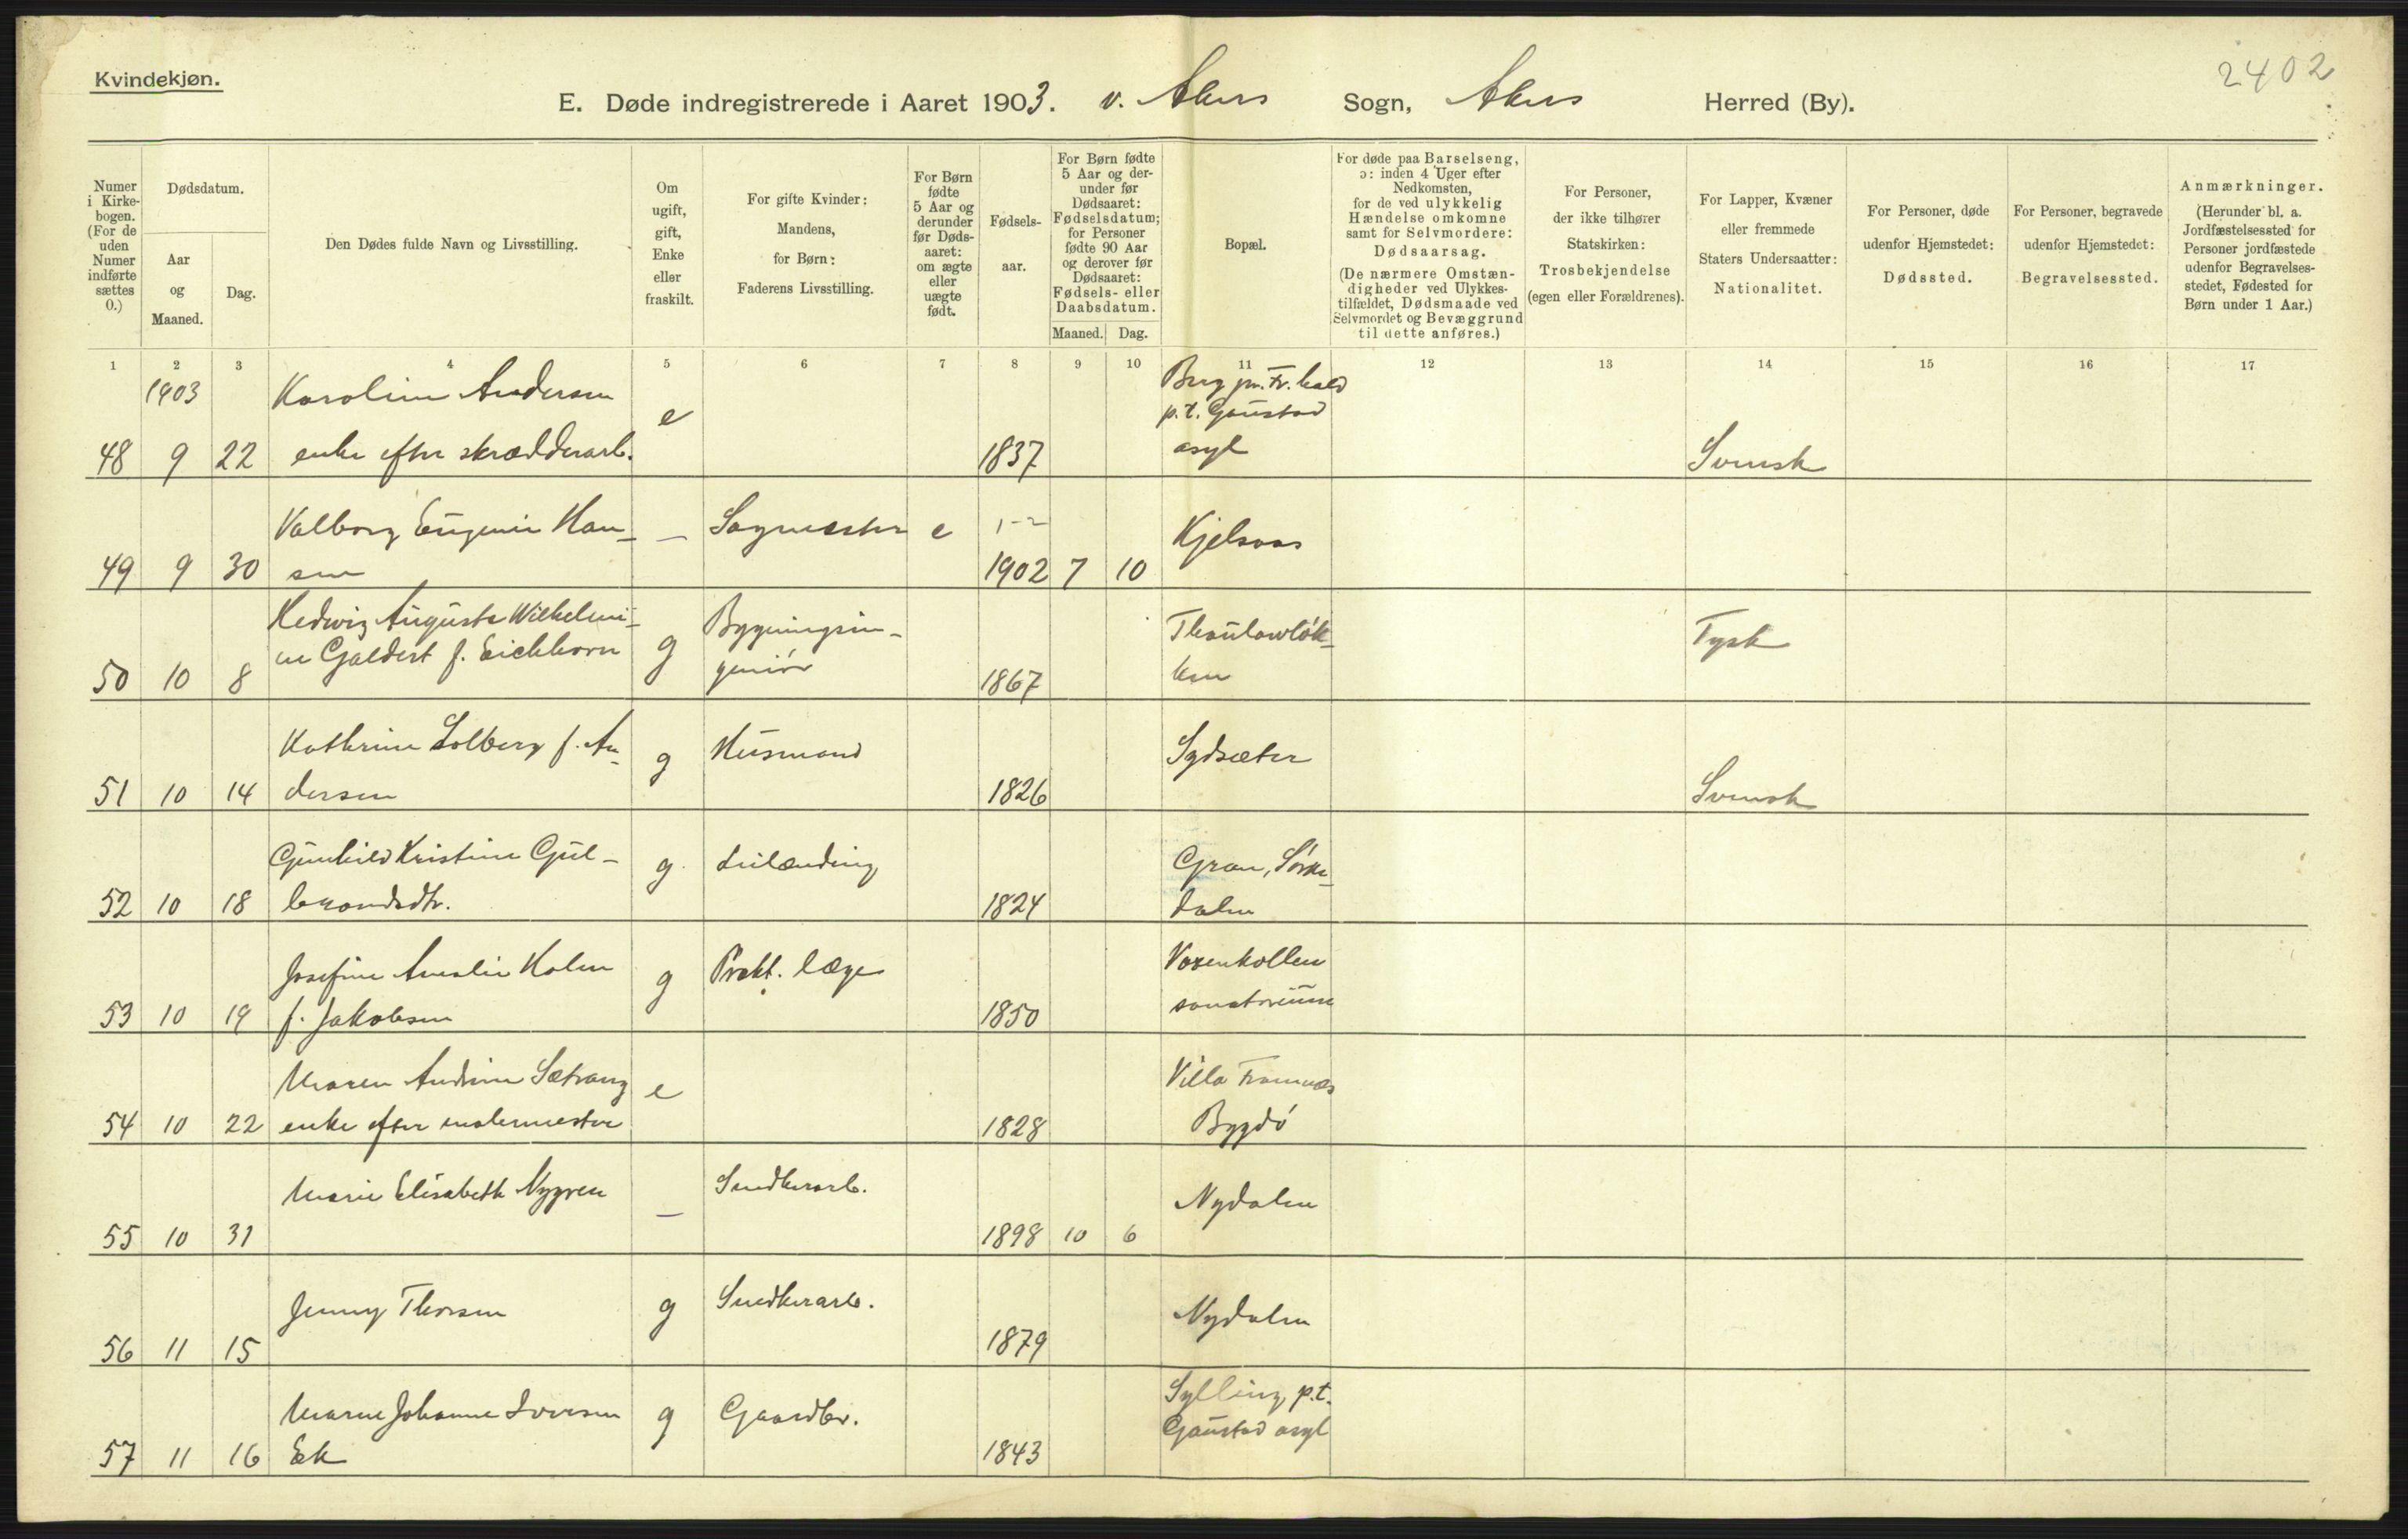 Kvindekjøn.
2402
E. Døde indregistrerede i Aaret 1903. v. Akers Sogn, Akers Herred (By).
Numer i Kirkebogen. (For de uden Numer indførte sættes 0.)
Dødsdatum.
Aar og Maaned.
Dag.
Den Dødes fulde Navn og Livsstilling.
Om ugift, gift, Enke eller fraskilt.
For gifte Kvinder: Mandens, for Børn: Faderens Livsstilling.
For Børn fødte 5 Aar og derunder før Dødsaaret: om ægte eller uægte født.
Fødselsaar.
For Børn fødte 5 Aar og derunder før Dødsaaret: Fødselsdatum; for Personer fødte 90 Aar og derover før Dødsaaret: Fødsels- eller Daabsdatum.
Maaned. Dag.
Bopæl.
For døde paa Barselseng, ɔ: inden 4 Uger efter Nedkomsten, for de ved ulykkelig Hændelse omkomne samt for Selvmordere: Dødsaarsag. (De nærmere Omstændigheder ved Ulykkestilfældet, Dødsmaade ved Selvmordet og Bevæggrund til dette anføres.)
For Personer, der ikke tilhører Statskirken: Trosbekjendelse (egen eller Forældrenes).
For Lapper, Kvæner eller fremmede Staters Undersaatter: Nationalitet.
For Personer, døde udenfor Hjemstedet: Dødssted.
For Personer, begravede udenfor Hjemstedet: Begravelsessted.
Anmærkninger. (Herunder bl. a. Jordfæstelsessted for Personer jordfæstede udenfor Begravelsesstedet, Fødested for Børn under 1 Aar.)
1 2 3 4 5 6 7 8 9 10 11 12 13 14 15 16 17
1903 Karoline Andersen e Berg pr. Fr.hald
p.t. Gaustad
48 9 22 enke efter skrædderarb. 1837 asyl Svensk
Valborg Eugenie Han- — Sagmester e 1-2 Kjelsaas
49 9 30 sen 1902 7 10
Hedwig Augusta Wilhelmi- g Bygningsin- Thaulowløk- Tysk
ne Galdert f. Eichhorn geniør
50 10 8 1867 ken
Kathrine Solberg f. An- g Husmand Sydsæter
51 10 14 dersen 1826 Svensk
Gunhild Kristine Gul- g. Leilænding Gran, Sørke-
52 10 18 brandsdtr. 1824 dalen
Josefine Amalie Holm g Prakt. læge Voxenkollen
53 10 19 f. Jakobsen 1850 sanatorium
Maren Andrine Sætrang e Villa Framnæs
54 10 22 enke efter malermester 1828 Bygdø
Marie Elisabeth Nygren — Snedkerarb. Nydalen
55 10 31 1898 10 6
Jenny Thorsen g Snedkerarb. Nydalen
56 11 15 1879
Maren Johanne Iversen g Gaardbr. Sylling p.t.
Gaustad asyl
57 11 16 Ek 1843